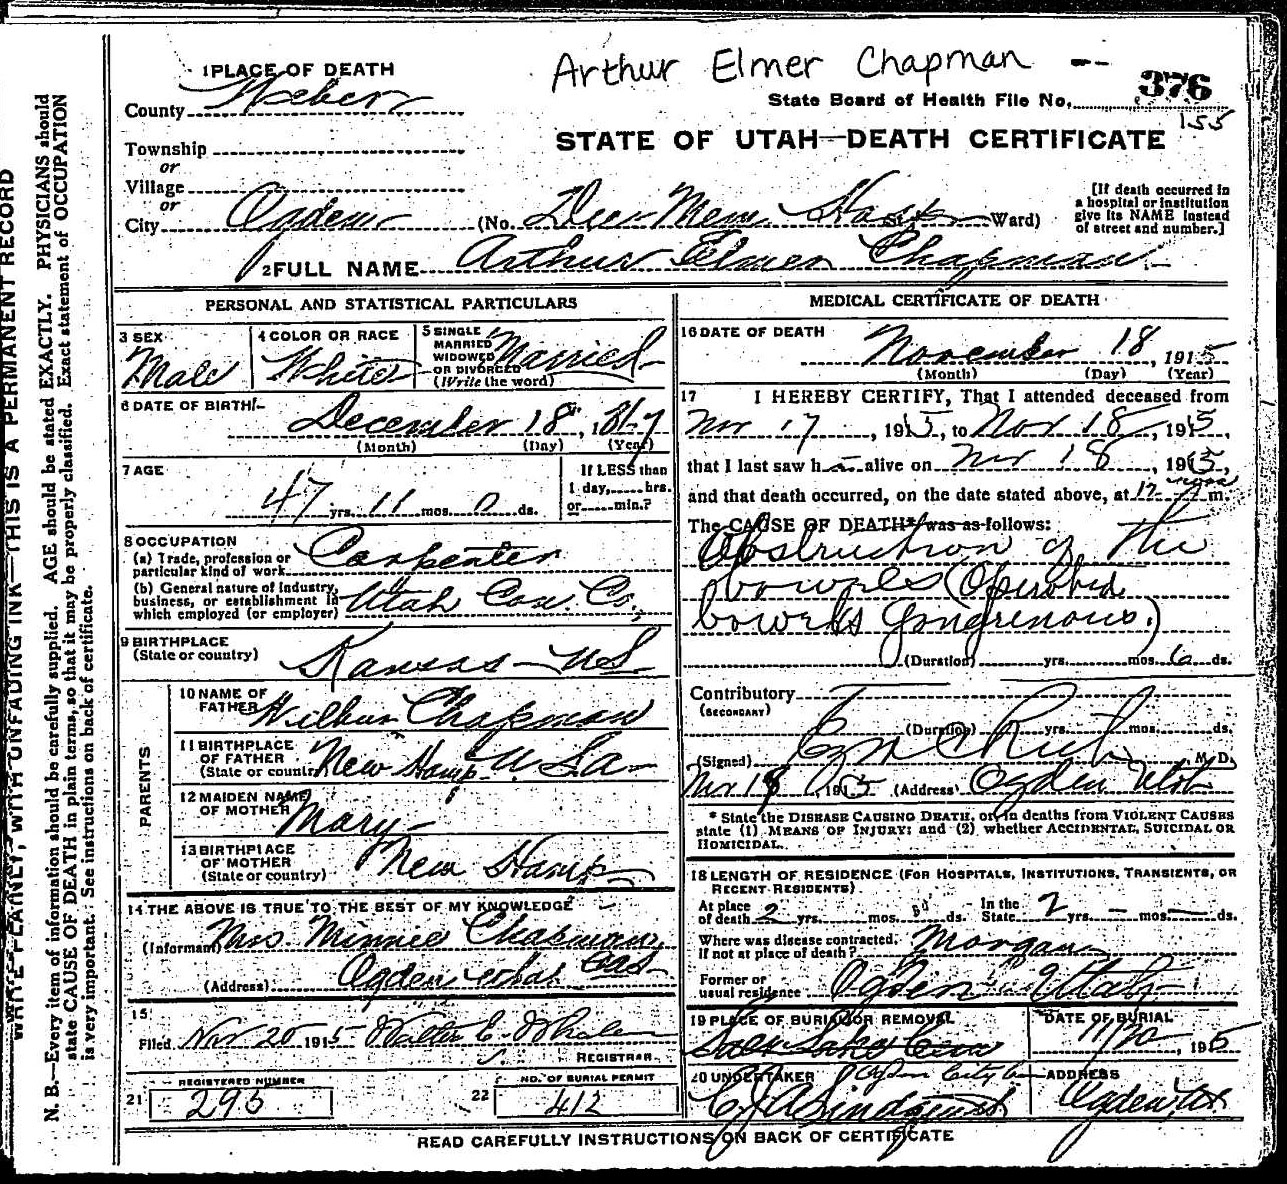 Arthur Elmer Chapman --
1 PLACE OF DEATH
376
County Weber
State Board of Health File No.
155
STATE OF UTAH—DEATH CERTIFICATE
Township
or
Village
or
City Ogden (No. Dee Mem. Hosp St. Ward)
[If death occurred in
a hospital or institution
give its NAME instead
of street and number.]
2 FULL NAME Arthur Elmer Chapman
PERSONAL AND STATISTICAL PARTICULARS
3 SEX
Male
4 COLOR OR RACE
White
5 SINGLE
MARRIED
WIDOWED
OR DIVORCED
(Write the word)
Married
6 DATE OF BIRTH
December 18, 1867
(Month) (Day) (Year)
7 AGE
47 yrs. 11 mos. 0 ds.
If LESS than
1 day, hrs.
or min.?
8 OCCUPATION
(a) Trade, profession or
particular kind of work
Carpenter
(b) General nature of industry,
business, or establishment in
which employed (or employer)
Utah Con. Co.
9 BIRTHPLACE
(State or country)
Kansas US
PARENTS
10 NAME OF
FATHER
Wilbur Chapman
11 BIRTHPLACE
OF FATHER
(State or country)
New Hamp. U.Sa
12 MAIDEN NAME
OF MOTHER
Mary
13 BIRTHPLACE
OF MOTHER
(State or country)
New Hamp
14 THE ABOVE IS TRUE TO THE BEST OF MY KNOWLEDGE
(Informant) Mrs. Minnie Chapman
(Address) Ogden
15
Filed Nov 20 1915 Walter E. Whalen
REGISTRAR
21 REGISTERED NUMBER
295
22 NO. OF BURIAL PERMIT
412
MEDICAL CERTIFICATE OF DEATH
16 DATE OF DEATH
November 18, 1915
(Month) (Day) (Year)
17 I HEREBY CERTIFY, That I attended deceased from
Nov 17, 1915, to Nov 18, 1915,
that I last saw h alive on Nov 18, 1915,
and that death occurred, on the date stated above, at 12 m.
The CAUSE OF DEATH* was as follows:
Obstruction of the
bowels (Operated
bowels gongrenous.)
(Duration) yrs. mos. 6 ds.
Contributory
(SECONDARY)
(Duration) yrs. mos. ds.
(Signed) M. D.
Nov 19, 1915 (Address) Ogden Utah
* State the DISEASE CAUSING DEATH, or, in deaths from VIOLENT CAUSES
state (1) MEANS OF INJURY; and (2) whether ACCIDENTAL, SUICIDAL OR
HOMICIDAL.
18 LENGTH OF RESIDENCE (FOR HOSPITALS, INSTITUTIONS, TRANSIENTS, OR
RECENT RESIDENTS)
At place
of death 2 yrs. mos. ds.
In the
State 2 yrs. — mos. — ds.
Where was disease contracted,
If not at place of death?
Morgan
Former or
usual residence
Ogden Utah
19 PLACE OF BURIAL OR REMOVAL
Ogden City
DATE OF BURIAL
11/20, 1915
20 UNDERTAKER
C J A Lindquist
ADDRESS
Ogden, Ut
READ CAREFULLY INSTRUCTIONS ON BACK OF CERTIFICATE
WRITE PLAINLY, WITH UNFADING INK—THIS IS A PERMANENT RECORD
N. B.—Every item of information should be carefully supplied. AGE should be stated EXACTLY. PHYSICIANS should
state CAUSE OF DEATH in plain terms, so that it may be properly classified. Exact statement of OCCUPATION
is very important. See instructions on back of certificate.